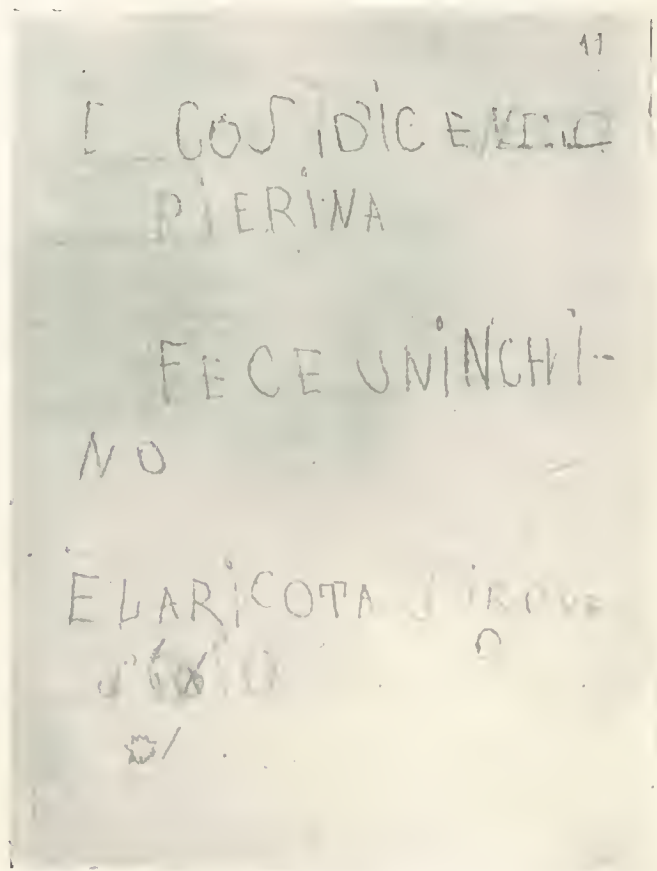 11
E COSIDICENDO
PIERINA
FECE UNINCHI-
NO
ELARICOTA SIROVE